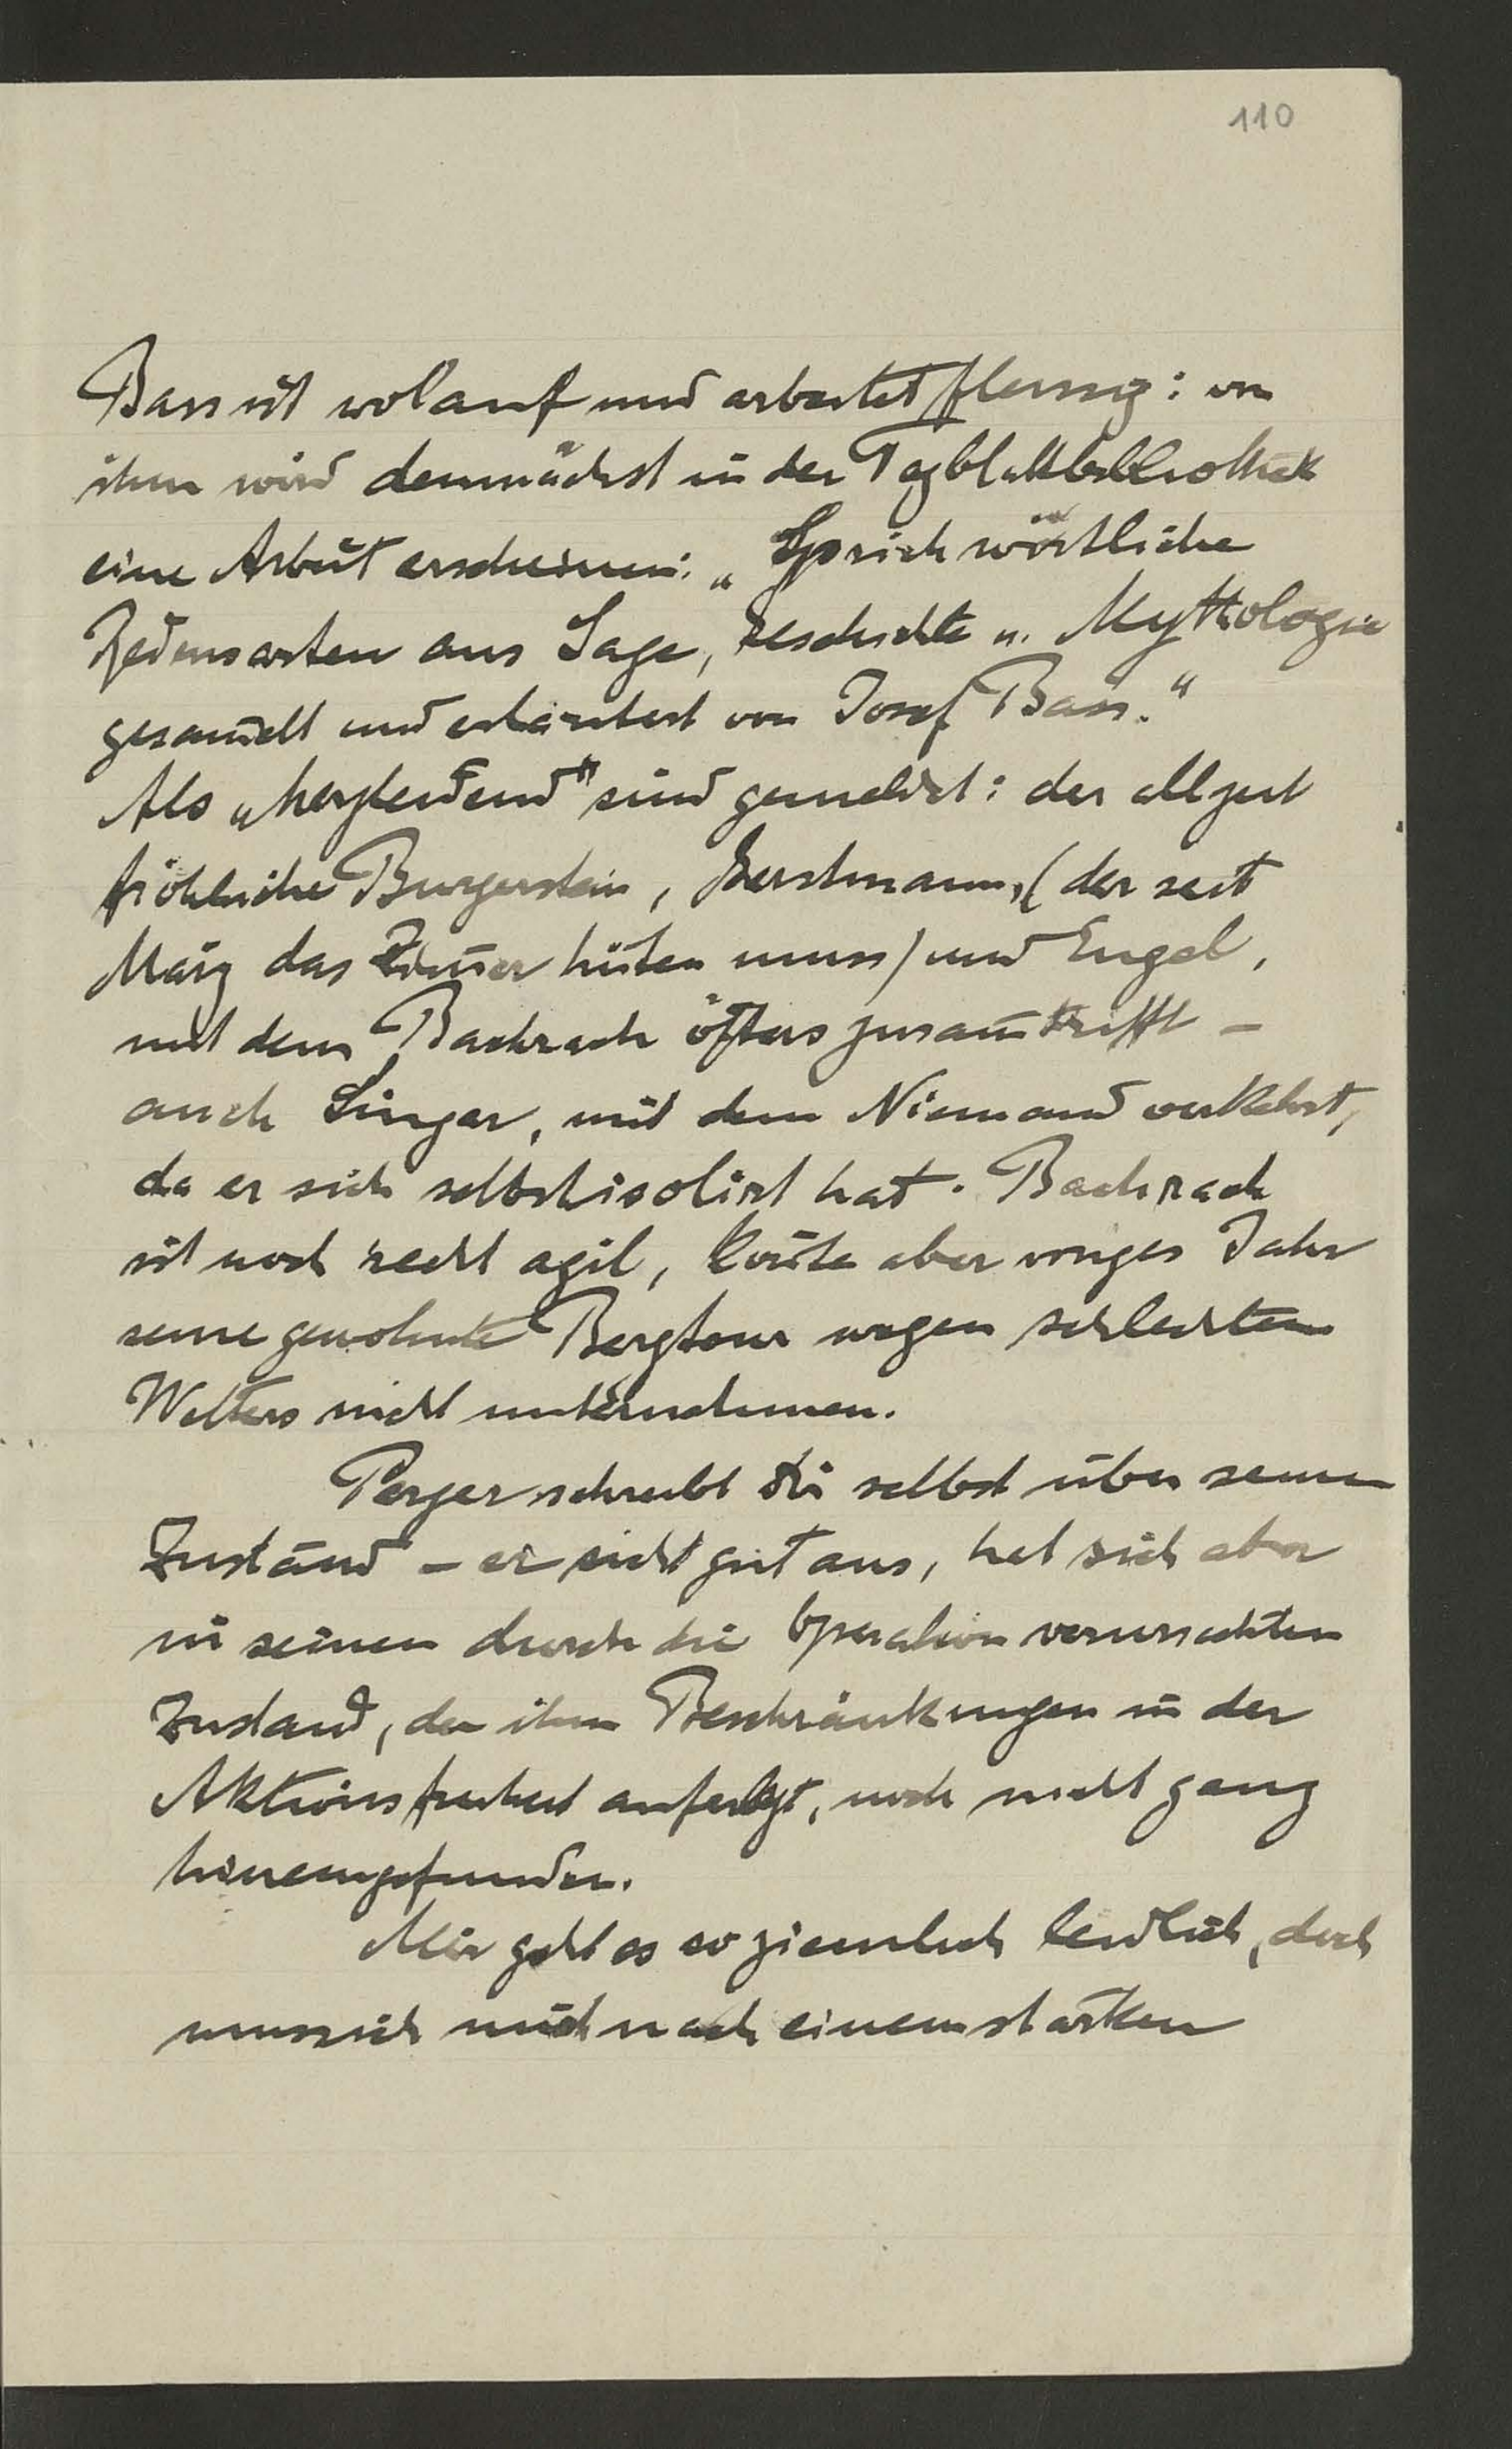 110
Bass ist wolauf und arbeitet fleissig: von
ihm wird demnächst in der Tagblattbibliothek
eine Arbeit erscheinen: „Sprichwörtliche
Redensarten aus Sage, Geschichte u. Mythologie
gesam̅elt und erläutert von Josef Bass."
Als „herzleidend" sind gemeldet: der allzeit
fröhliche Burgerstein, Gerstmann, (der seit
März das Zim̅er hüten muss) und Engel,
mit dem Bachrach öfters zusam̅trifft –
auch Singer, mit dem Niemand verkehrt,
da er sich selbst isolirt hat. Bachrach
ist noch recht agil, kon̅te aber voriges Jahr
seine gewohnte Bergtour wegen schlechten
Wetters nicht unternehmen.
Perger schreibt Dir selbst über seinen
Zustand – er sieht gut aus, hat sich aber
in seinen durch die Operation verursachten
Zustand, der ihm Beschränkungen in der
Aktionsfreiheit auferlegt, noch nicht ganz
hineingefunden.
Mir geht es so ziemlich leidlich, doch
muss ich mich nach einem starken